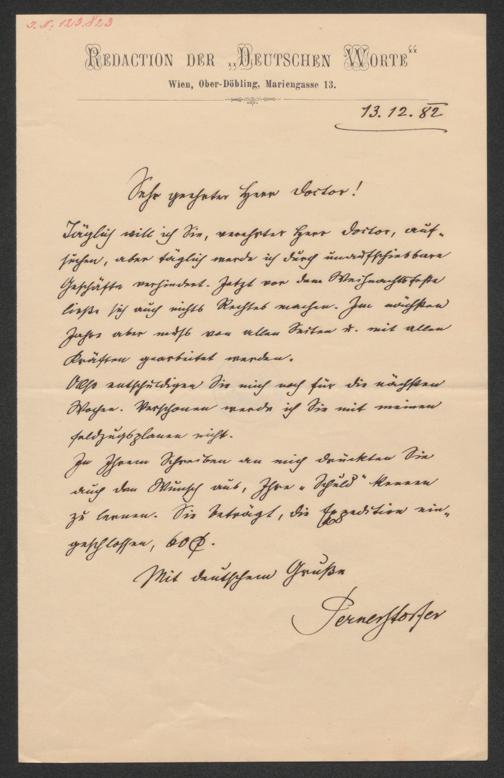 J.N. 129.823
REDACTION DER „DEUTSCHEN WORTE“
Wien, Ober-Döbling, Mariengasse 13.
13.12.82
Sehr geehrter Herr Doctor!
Täglich will ich Sie, verehrter Herr Doctor, auf-
suchen, aber täglich werde ich durch unaufschiebbare
Geschäfte verhindert. Jetzt vor dem Weihnachtsfeste
ließe sich auch nichts Rechtes machen. Im nächsten
Jahre aber muß von allen Seiten u. mit allen
Kräften gearbeitet werden.
Also entschuldigen Sie mich noch für die nächsten
Wochen. Verschonen werde ich Sie mit meinen
Feldzugsplanen nicht.
In Ihrem Schreiben an mich drückten Sie
auch den Wunsch aus, Ihre „Schuld“ kennen
zu lernen. Sie beträgt, die Expedition ein-
geschlossen, 60
Mit deutschem Gruße
Pernerstorfer